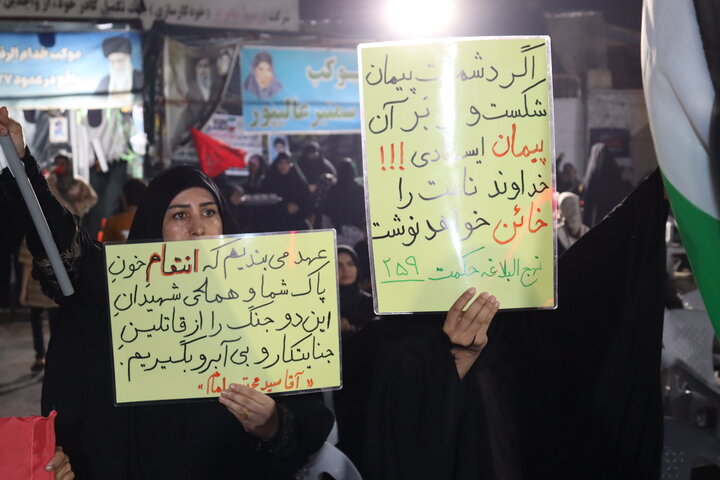 اگر دشمنت پیمان
شکست و بر آن
پیمان ایستادی !!!
خداوند نامت را
خائن خواهد نوشت
نهج البلاغه حکمت ۲۵۹
عهد می‌بندیم که انتقام خونِ
پاک شما و همگی شهیدانِ
این دو جنگ را از قاتلین
جنایتکار و بی آبرو بگیریم.
"آقا سید مجتبی امام"
موکب خدام الرضا
واقع در عمود
موکب
سنتبر عالیپور